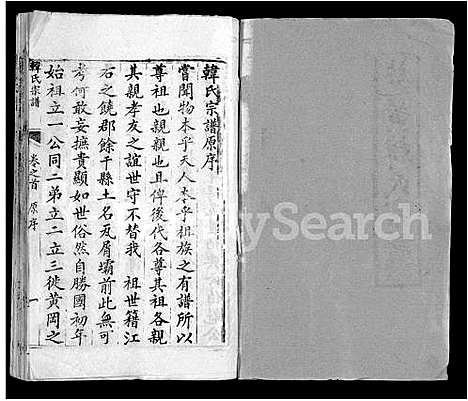 韓氏宗譜原序
嘗聞物本乎天人本乎祖族之有譜所以
尊祖也親親也且俾後代各尊其祖各親
其親孝友之誼世守不替我 祖世籍江
右之饒郡餘干縣土名瓦屑壩前此無可
考何敢妄摭貴顯如世俗然自勝國初年
始祖立一公同二弟立二立三徙黃岡之
韓氏宗譜
卷之首 原序
一
FamilySearch